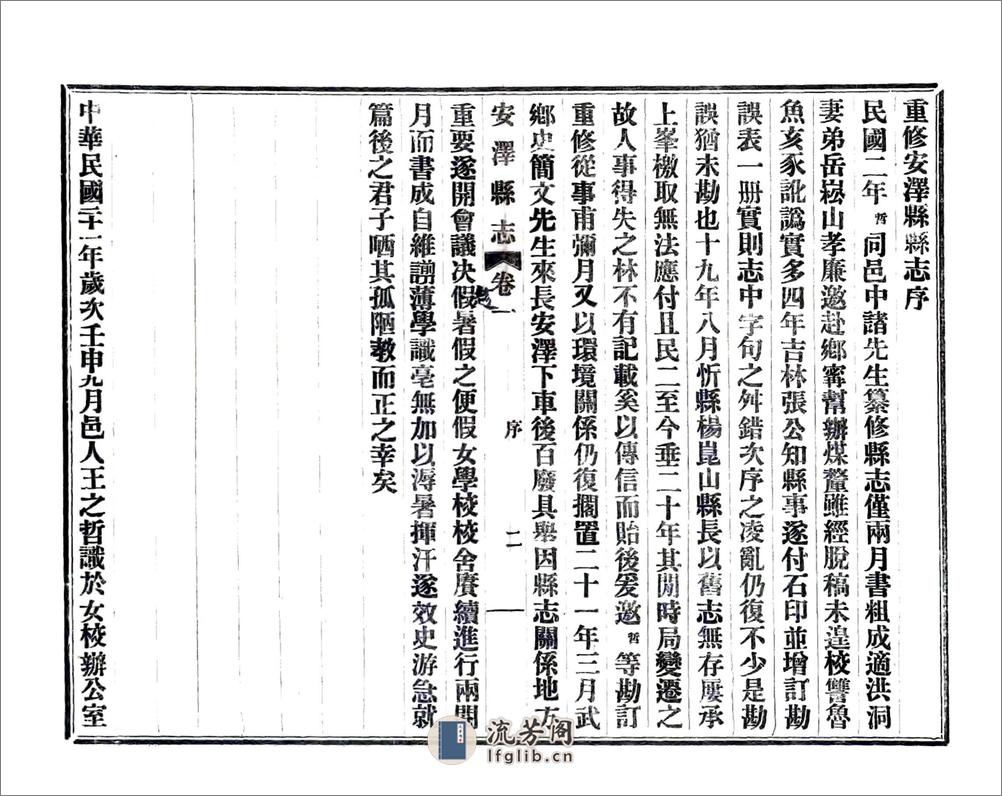 重修安澤縣縣志序
民國二年哲同邑中諸先生纂修縣志僅兩月書粗成適洪洞
妻弟岳崧山孝廉邀赴鄉寗幫辦煤釐雖經脫稿未遑校讐魯
魚亥豕訛譌實多四年吉林張公知縣事遂付石印並增訂勘
誤表一册實則志中字句之舛錯次序之凌亂仍復不少是勘
誤猶未勘也十九年八月忻縣楊崑山縣長以舊志無存屢承
上峯檄取無法應付且民二至今垂二十年其閒時局變遷之
故人事得失之林不有記載奚以傳信而貽後爰邀哲等勘訂
重修從事甫彌月又以環境關係仍復擱置二十一年三月武
鄉史簡文先生來長安澤下車後百廢具舉因縣志關係地方
安澤縣志 卷一 序 二
重要遂開會議决假暑假之便假女學校校舍賡續進行兩閱
月而書成自維謭薄學識毫無加以溽暑揮汗遂效史游急就
篇後之君子哂其孤陋教而正之幸矣
中華民國二十一年歲次壬申九月邑人王之哲識於女校辦公室
流芳阁
lfglib.cn